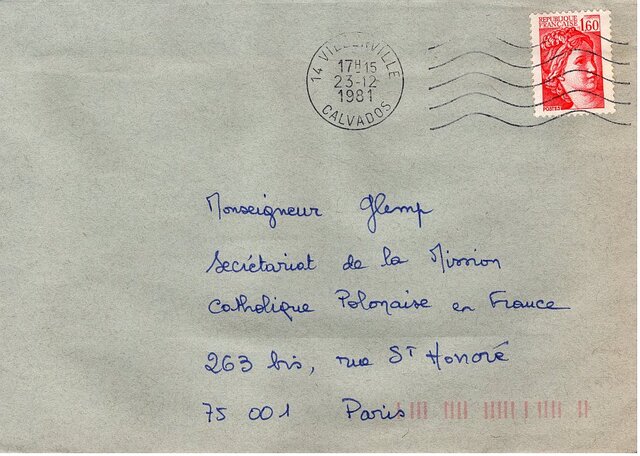 REPUBLIQUE FRANÇAISE 1,60
POSTES
14 VILLERVILLE
17H15
23-12
1981
CALVADOS
Monseigneur Glemp
Secrétariat de la Mission
Catholique Polonaise en France
263 bis, rue ST Honoré
75 001 Paris